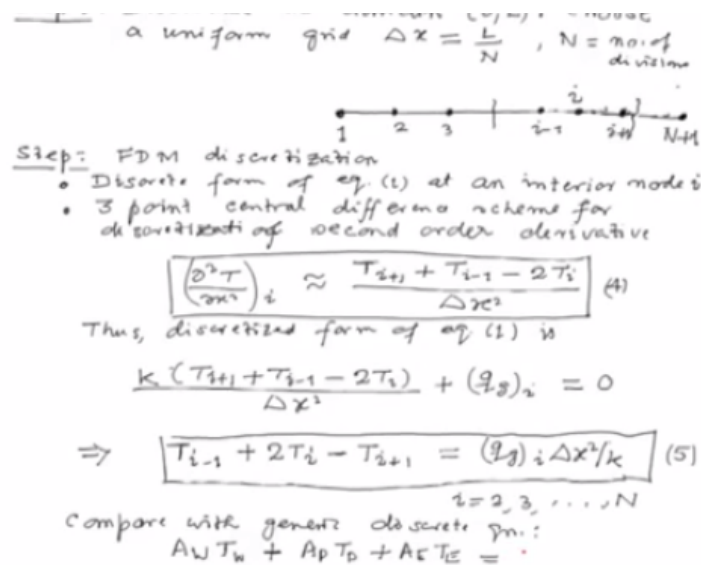 a uniform grid Δx = L/N , N = no. of
division
1 2 3 i-1 i i+1 N+1
Step: FDM discretization
• Discrete form of eq. (1) at an interior node i
• 3 point central difference scheme for
discretization of second order derivative
(∂²T/∂x²)i ≈ (Ti+1 + Ti-1 - 2Ti)/Δx² (4)
Thus, discretized form of eq (1) is
k (Ti+1 + Ti-1 - 2Ti)/Δx² + (qg)i = 0
⇒ Ti-1 + 2Ti - Ti+1 = (qg)i Δx²/k (5)
i = 2, 3, ..., N
Compare with generic discrete qn.:
AW TW + AP TP + AE TE =